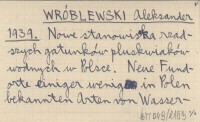 WRÓBLEWSKI Aleksander
1939. Nowe stanowiska rzad-
szych gatunków pluskwiaków
wodnych w Polsce. Neue Fund-
orte einiger weniger in Polen
bekannten Arten von Wasser-